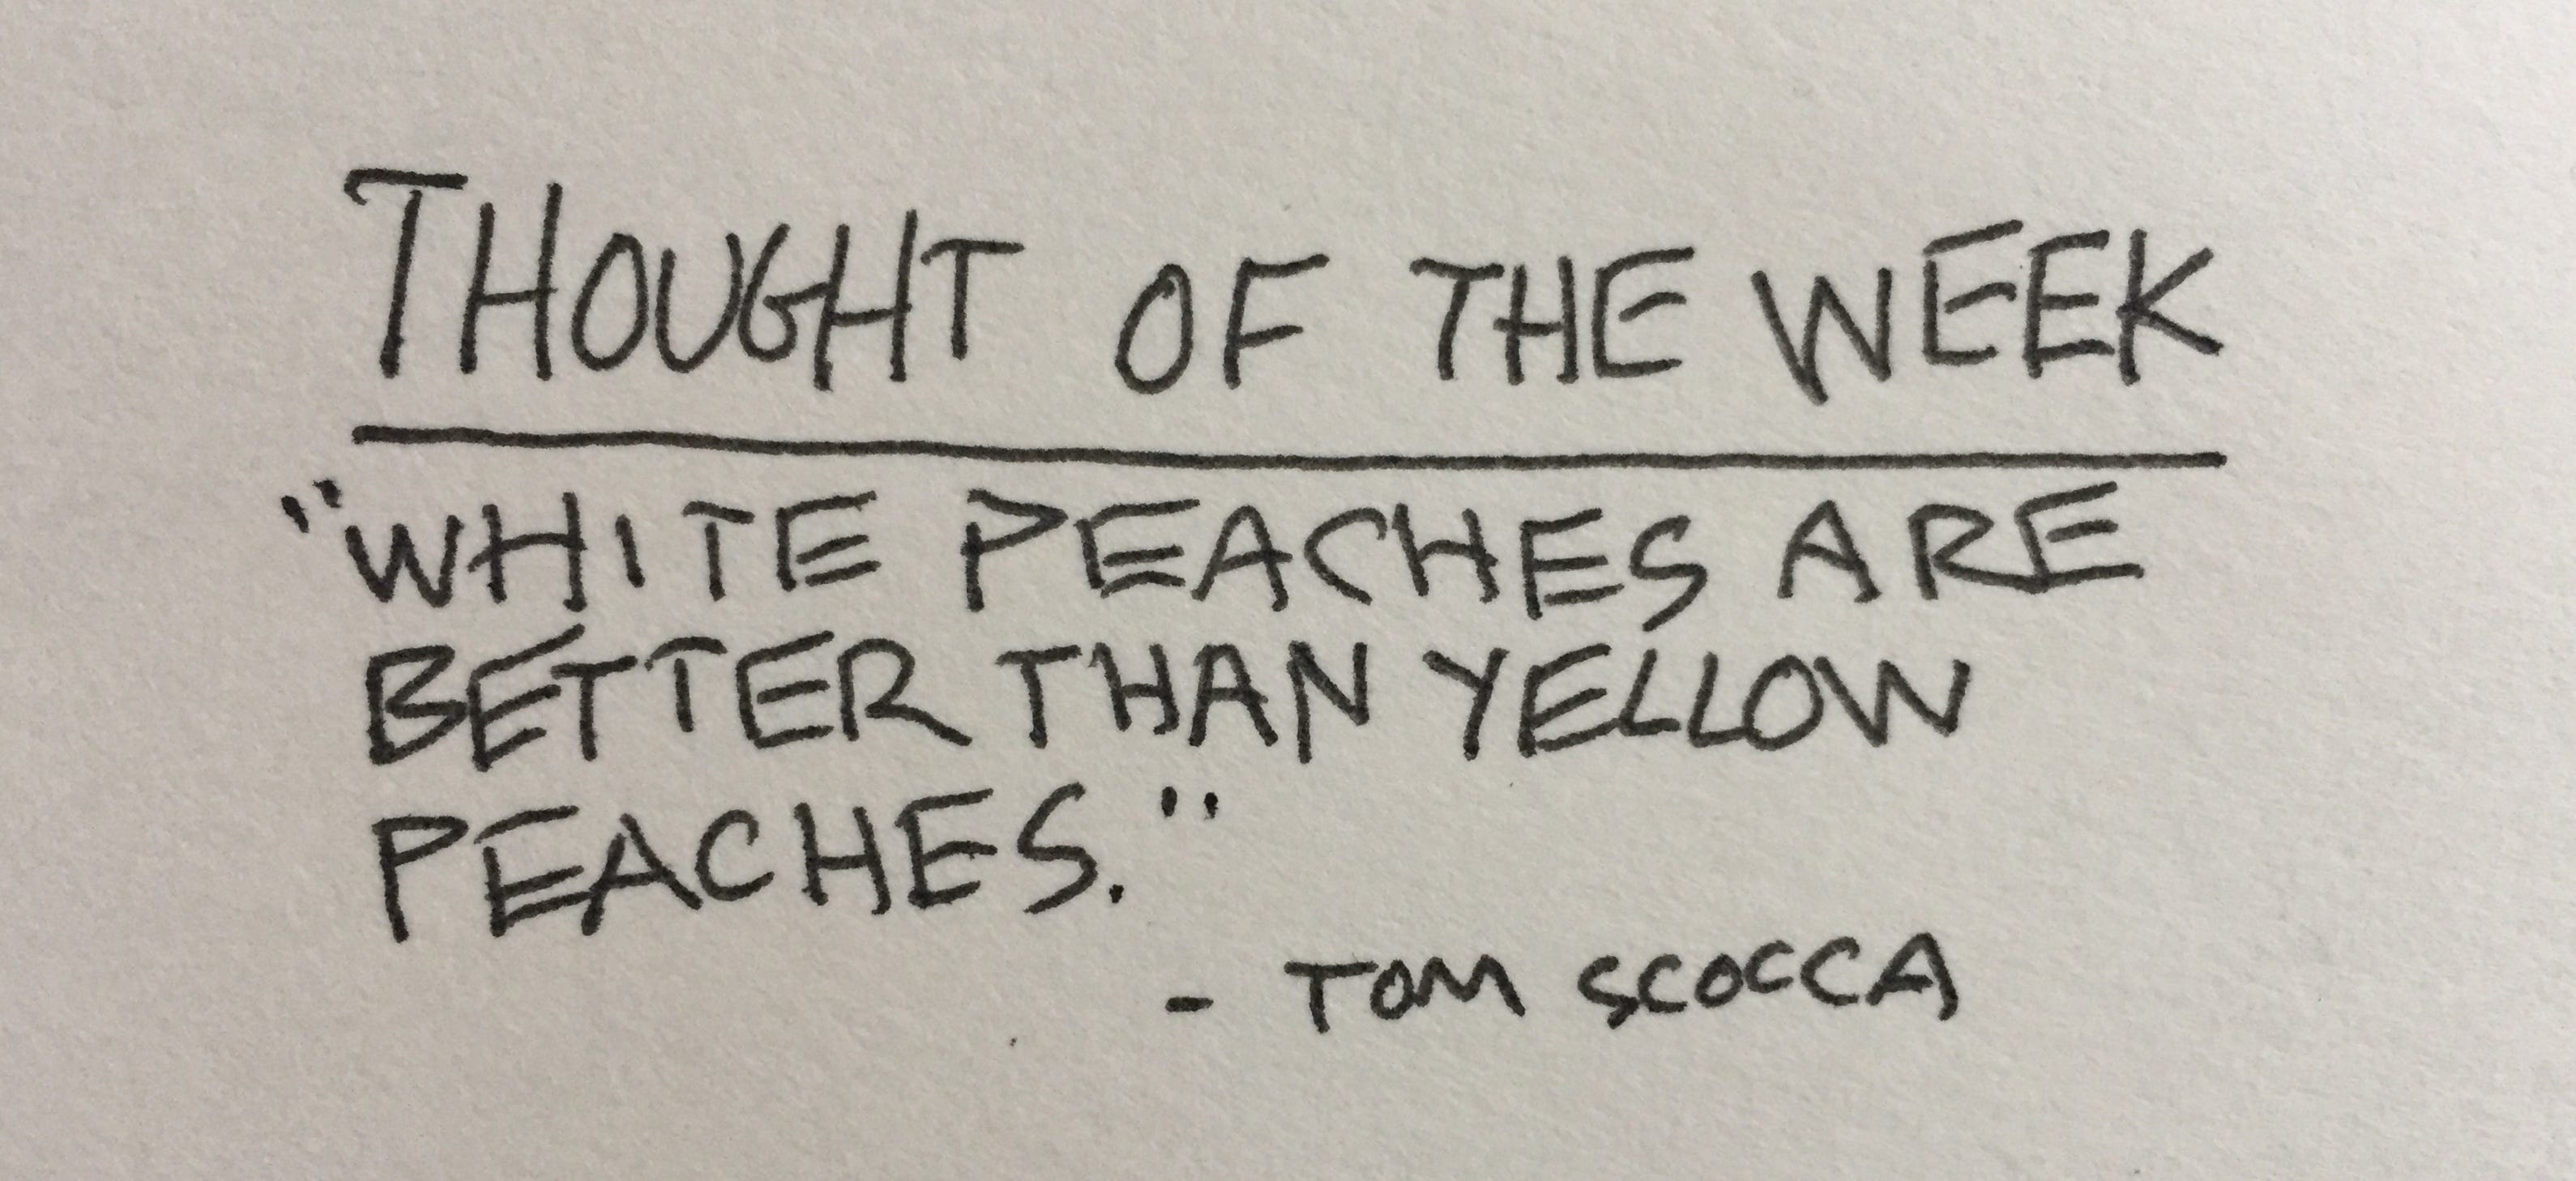 THOUGHT OF THE WEEK
"WHITE PEACHES ARE
BETTER THAN YELLOW
PEACHES."
- TOM SCOCCA